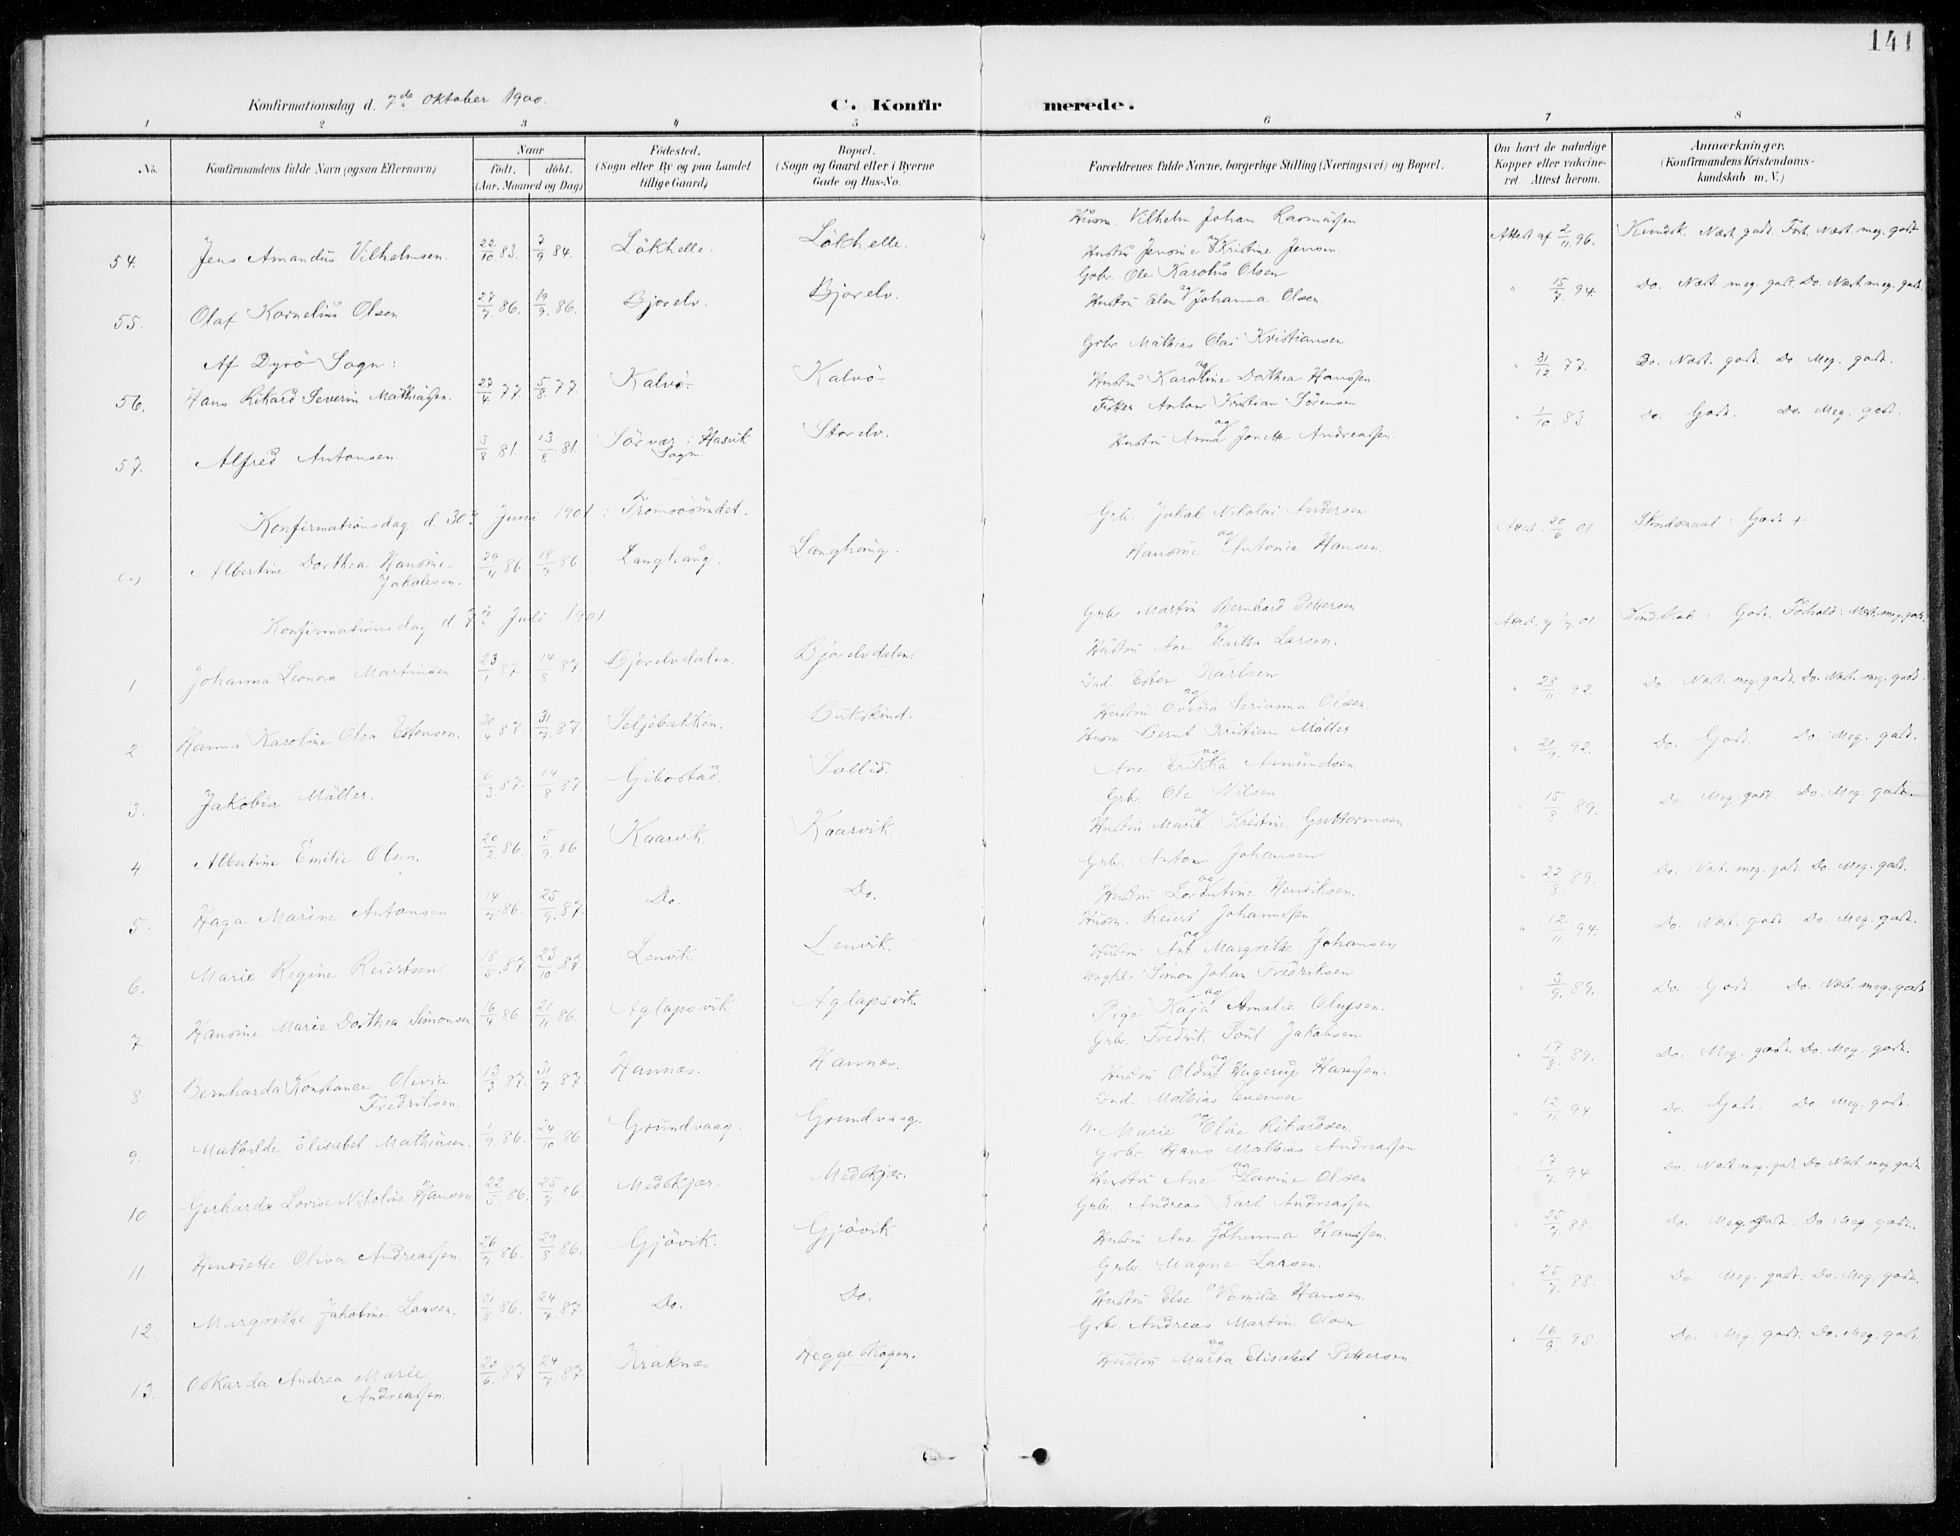 141
Konfirmationsdag d. 7de Oktober 1900.
C. Konfirmerede.
1 2 3 4 5 6 7 8
No. Konfirmandens fulde Navn (ogsaa Efternavn) Naar født. døbt. (Aar, Maaned og Dag) Fødested. (Sogn eller By og paa Landet tillige Gaard) Bopæl. (Sogn og Gaard eller i Byerne Gade og Hus-No. Forældrenes fulde Navne, borgerlige Stilling (Næringsvei) og Bopæl. Om havt de naturlige Kopper eller vakcineret Attest herom. Anmærkninger. (Konfirmandens Kristendomskundskab m. V.)
54. Jens Amandus Vilhelmsen. 22/10 83. 7/9 84. Lökhelle. Lökhelle. Husm. Vilhelm Johan Rasmussen og Hustru Jensine Kristine Jensen. Attest af 2/11 96. Kundsk. Næst. godt Forh. Næst. meg. godt
55. Olaf Kornelius Olsen 27/7 86. 19/9 86. Bjorelv. Bjorelv. Gbr. Ole Karolus Olsen og Hustru Elen Johanna Olsen. " 15/7 94. Do. Næst meg. godt. Do. Næst meg. godt.
Af Dyrö Sogn:
56. Hans Rikard Severin Mathiassen. 27/4 77. 5/8 77. Kalvö Kalvö Grbr. Mathias Olai Kristiansen og Hustru Karoline Dorthea Hanssen " 31/12 77. Do. Næst. godt. Do. Meg. godt.
57. Alfred Antonsen 3/8 81. 13/8 81. Sörvær i Hasvik Sogn. Storelv. Fisker Anton Kristian Sörensen og Hustru Anna Jonette Andreassen. " 1/10 83. Do. Godt. Do. Meg. godt.
Konfirmationsdag d. 30te Juni 1901 i Tromsösundet.
Albertine Dorthea Hansine Jakobsen. 29/4 86 18/7 86. Langhaug. Langhaug. Grb. Jakob Nikolai Andersen og Hansine Antonia Hansen. Attest. 20/6 01 Godt +
Konfirmationsdag d 7de Juli 1901
1 Johanna Leonora Martinsen 23/1 87. 14/8 87 Bjorelvdalen. Bjorelvdalen. Grbr. Martin Bernhard Pettersen og Hustru Ane Larsen. Attest. af 1/7 01. Kundskab: Godt. Forhold: Næst. meg. godt.
2 Hanna Karoline Olea Estensen. 30/4 87 31/7 87. Seljebakken. Bukskind. Ind. Esten Karlsen og Hustru Ovedia Serianna Olsen. " 28/11 92. Do. Næst. meg. godt. Do. Næst. meg. godt.
3. Jakobia Möller. 6/3 87. 14/8 87 Gibostad. Sollid. Husm. Bernt Kristian Möller og Ane Erikka Amundsen. " 21/9 92. Do. Godt. Do. Meg. godt.
4. Albertine Emilie Olsen. 20/2 86. 5/9 86 Kaarvik. Kaarvik. Grbr. Ole Nilsen og Hustru Marit Kristine Guttormsen " 15/8 89. Do. Meg. godt. Do. Meg. godt.
5. Haga Marine Antonsen 14/7 86. 25/9 87. Do. Do. Grbr. Anton Johansen og Hustru Lorentine Henriksen. " 22/8 89. Do. Næst. meg. godt Do Meg. godt.
6. Marie Regine Reiertsen 13/5 87. 23/10 87 Lenvik. Lenvik. Husm. Reiert Johannessen og Hustru Ane Margrethe Johansen " 12/11 94. Do. Næst. godt. Do. Meg. godt.
7. Hansine Marie Dorthea Simonsen 16/4 86 21/11 86. Aglapsvik. Aglapsvik. Ungkl. Simon Johan Fredriksen og Pige Kaja Amalie Olufsen. " 3/9 89. Do. Godt. Do. Næst meg. godt
8 Bernharda Konstance Olivia Fredriksen. 13/3 87. 31/7 87. Havnnæs. Havnnæs. Grbr. Fredrik Poul Jakobsen og Hustru Oldine Hagerup Hanssen. " 17/8 89. Do. Meg. godt. Do. Meg. godt.
9. Mathilde Elisabet Mathiassen. 1/9 86. 24/10 86 Grundvaag. Grundvaag. Ind. Mathias Evensen og H. Marie Oline Rikardsen. " 12/11 94 Do. Godt. Do. Meg. godt.
10. Gerharda Lovise Nikoline Hansen 22/5 86. 25/7 86 Medkjær. Medkjær. Grbr. Hans Mathias Andreassen og Hustru Ane Lavine Olsen " 17/7 94 Do. Næst meg. godt Do. Næst. meg. godt.
11. Henriette Olina Andreassen. 26/7 86. 29/8 86. Gjövik. Gjövik. Grbr. Andreas Karl Andreassen og Hustru Ane Johanna Hanssen. " 25/7 88. Do. Meg. godt. Do. Meg. godt.
12. Margrethe Jakobine Larsen. 31/8 86. 24/7 87 Do. Do. Grbr. Magne Larsen. og Hustru Else Emilie Hansen. " 25/7 88. Do. Meg. godt. Do. Meg. godt.
13. Oskarda Andrea Marie Andreassen. 20/6 87 24/7 87 Kraknæs Heggeskogen. Grbr. Andreas Martin Olsen og Hustru Marta Elisabet Pettersen " 16/9 95. Do. Meg. godt. Do. Meg. godt.